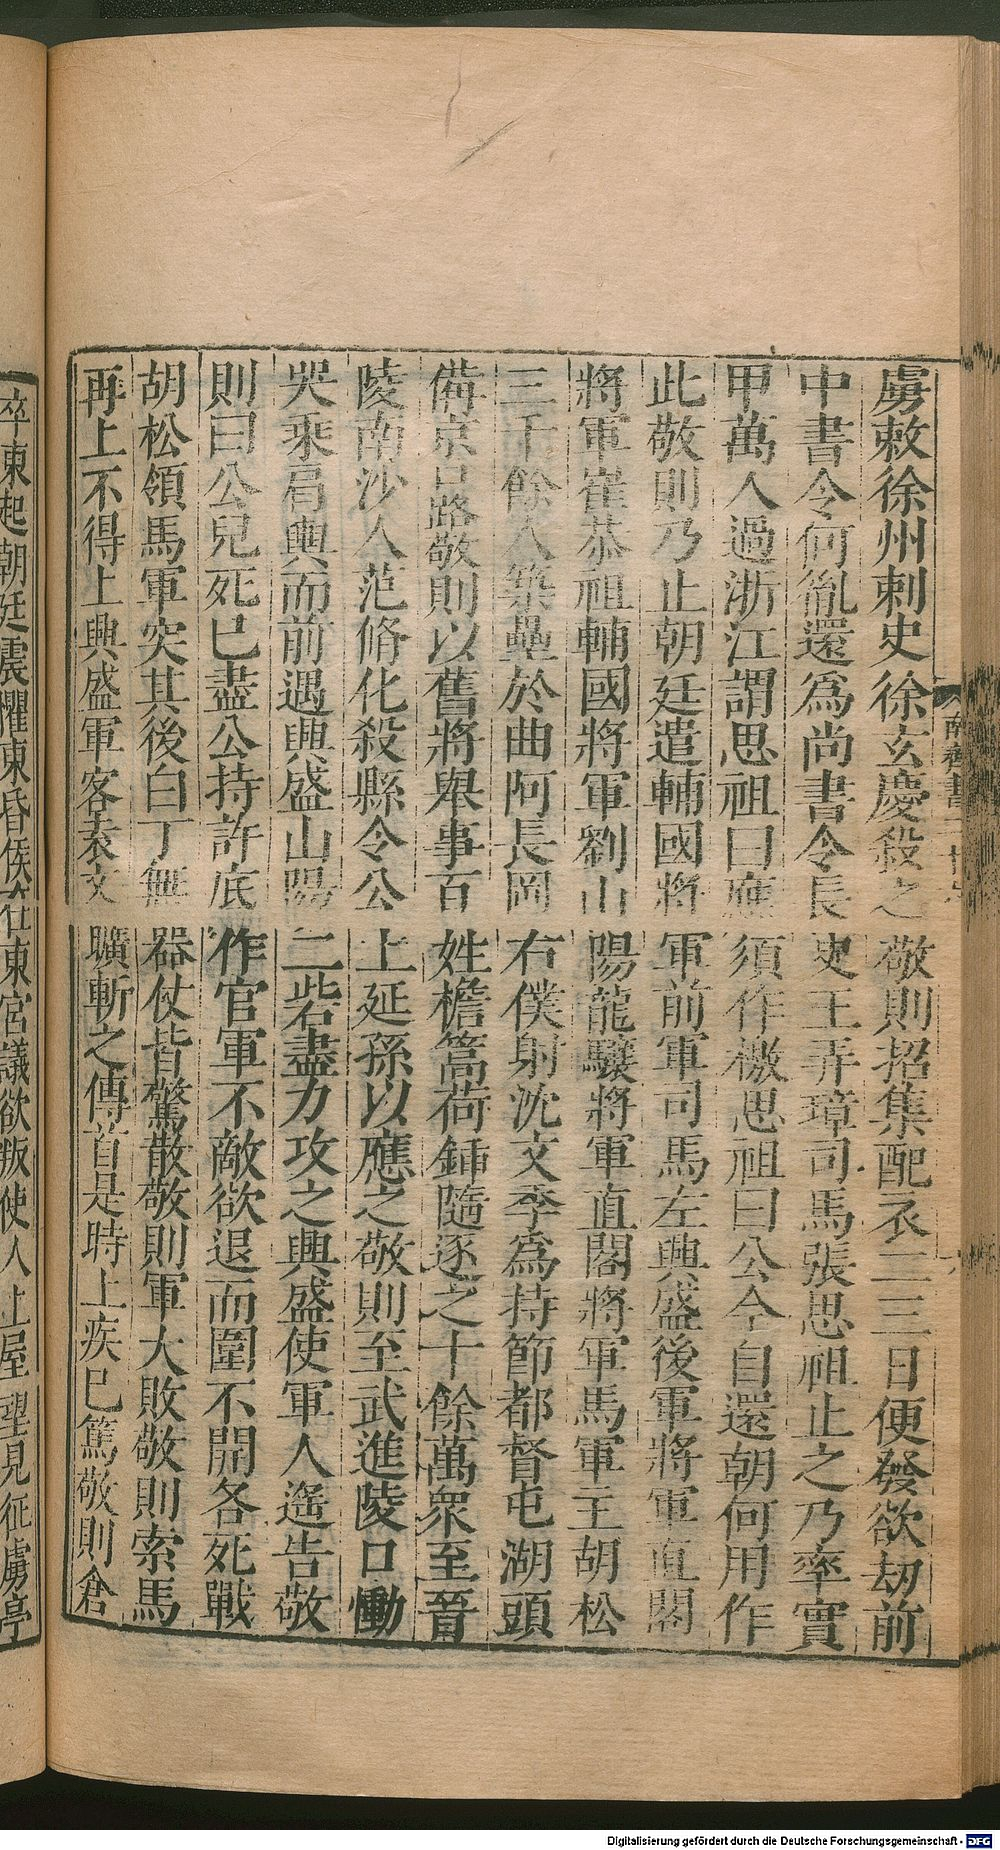 虜敕徐州刺史徐玄慶殺之敬則招集配衣二三日便發欲劫前
中書令何胤還為尚書令長史王弄璋司馬張思祖止之乃率實
甲萬人過浙江謂思祖曰應須作檄思祖曰公今自還朝何用作
此敬則乃止朝廷遣輔國將軍前軍司馬左興盛後軍將軍直閤
將軍崔恭祖輔國將軍劉山陽龍驤將軍直閤將軍馬軍主胡松
三千餘人築壘於曲阿長岡右僕射沈文季為持節都督屯湖頭
備京口路敬則以舊將舉事百姓檐篙荷鍤隨逐之十餘萬衆至晉
陵南沙人范脩化殺縣令公上延孫以應之敬則至武進陵口慟
哭乘肩輿而前遇興盛山陽二砦盡力攻之興盛使軍人遥告敬
則曰公兒死已盡公持許底作官軍不敵欲退而圍不開各死戰
胡松領馬軍突其後白丁無器仗皆驚散敬則軍大敗敬則索馬
再上不得上興盛軍客袁文曠斬之傳首是時上疾已篤敬則倉
卒東起朝廷震懼東昏侯在東宮議欲叛使人上屋望見征虜亭
南齊書
Digitalisierung gefördert durch die Deutsche Forschungsgemeinschaft - DFG